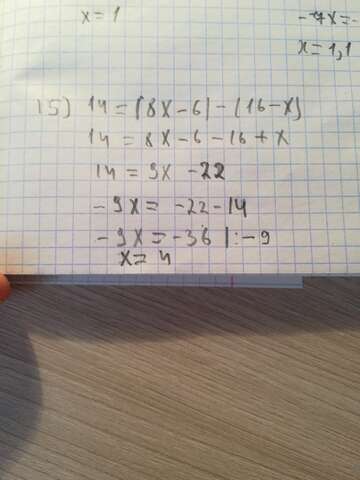 x=1
-7x=-
x=1,1
15) 14=(8x-6)-(16-x)
14=8x-6-16+x
14=9x-22
-9x=-22-14
-9x=-36 |:-9
x=4